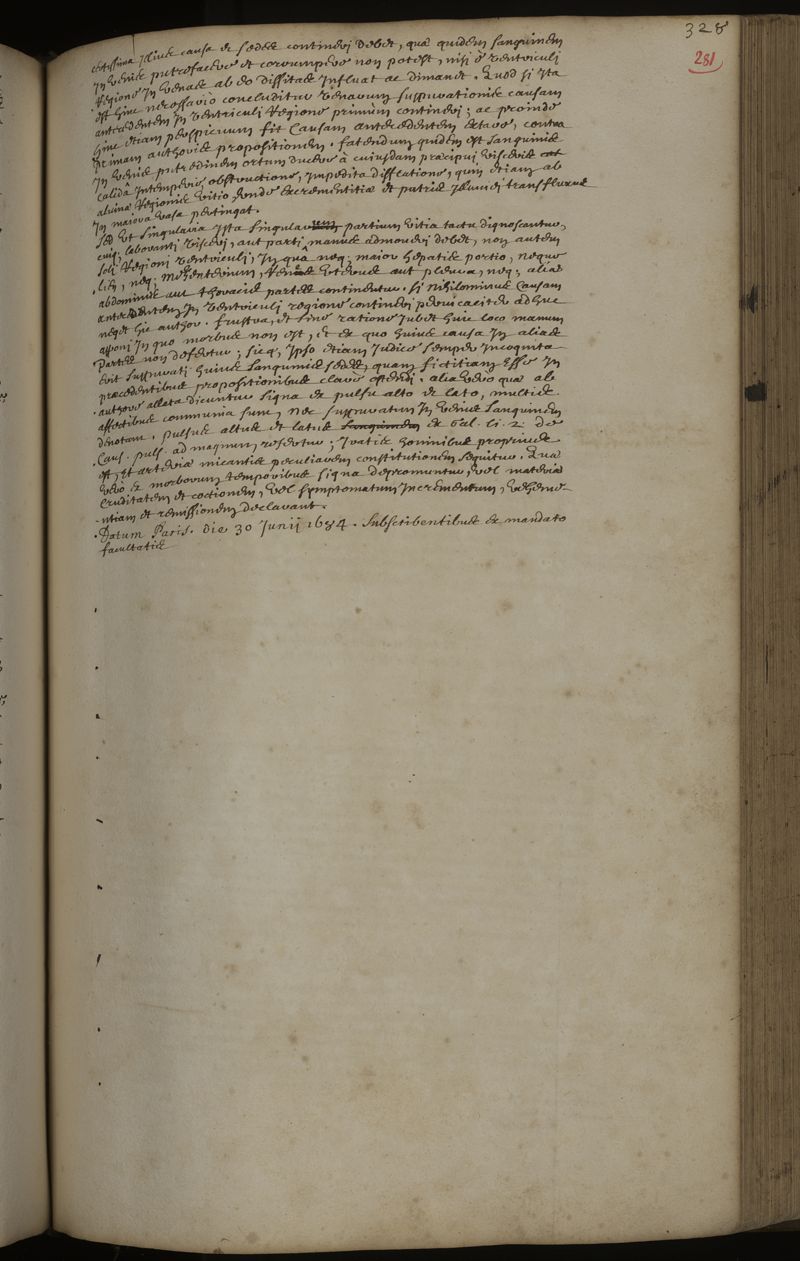 328
281
certissima Illius causa et sedes contineri debet, qua quidem sanguinem
In venis putrefacere et corrumpere non potest, nisi è ventriculi
Regione In venas ab eo diffitae Influat ac dimanet. Quod si Ita
est hinc necessario concluditur venarum suppurationis causam
antecedentem In ventriculi Regione primum contineri; ac proinde
hinc etiam perspicuum fit Causam antecedentem extare, contra
primam authoris propositionem. fatendum quidem est sanguinis
In venis putredinem ortum ducere à cuiusdam praecipui visceris
calida Intemperie, obstructione, Impedita difflatione, quin etiam ab
aluinae Regionis vitio, unde excrementitia et putris Illuvies transfluxus
In maiora vasa pertingat.
Sed ut singularia Ista singularum partium vitia tactu dignoscantur,
cuiq; laboranti visceri, aut parti manus admoveri debet, non autem
soli Regioni ventriculi, In qua neq; maior hepatis portio, neque
lien, neq; mesenterium, Renes uterque aut pleura, neq; alia
abdominis aut thoracis partes continentur. si Nihilominus Causam
antecedentem In ventriculi regione contineri pervicaciter adhuc
neget hic author. frustra, et sine ratione Iubet huic loco manum
apponi In quo morbus non est, et ex quo huius causa In alias
Partes non defertur; sicq; Ipso etiam Iudice semper Incognita
erit suppurati huius sanguinis sedes, quam fictitiam esse In
praecedentibus propositionibus clare ostendi. alia vero quae ab
authore allata dicuntur signa ex pulsu alto et lato, multis
affectibus communia sunt, Nec suppuratum In venis sanguinem
denotant. Pulsus altus et latus sanguinem ex Gal. li. 2. de
Caus. puls. ad magnum refertur; Iratis hominibus proprius
est, et arteriae micantis peculiarem constitutionem sequitur. Qua
vero ex morborum temporibus signa depromuntur, vel materiae
cruditatem et coctionem, vel symptomatum Incrementum, veheme-
-ntiam et remissionem declarant.
Datum Paris. die 30 Junij 1684. Subscribentibus ex mandato
facultatis